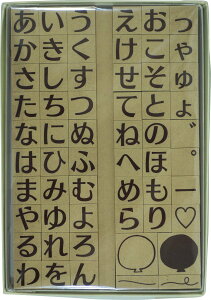 あかさたなはまやるわ
いきしちにひみゆれを
うくすつぬふむよろん
えけせてねへめら
おこそとのほもり
っゃゅょ゛゜ー♡